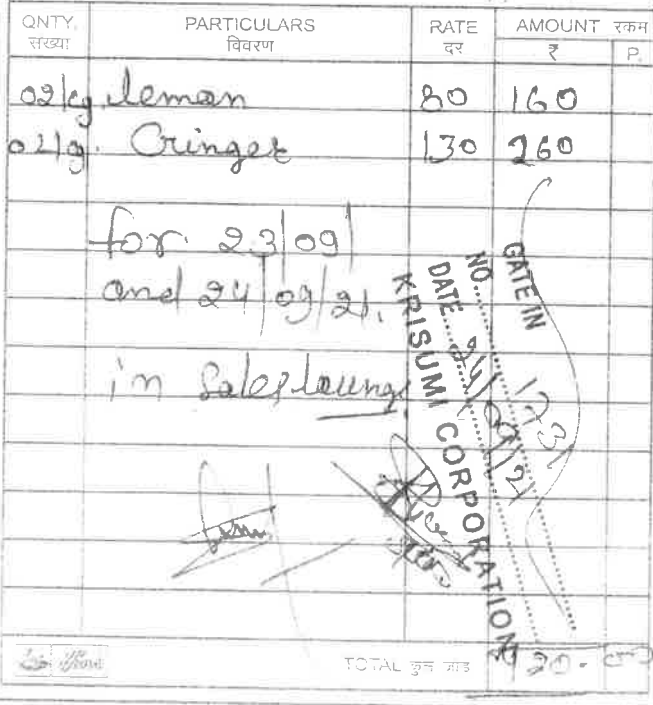 QNTY. PARTICULARS RATE AMOUNT रकम
संख्या विवरण दर ₹ P.
02kg. leman 80 160
02kg. Cringer 130 260
for 23/09/
and 24/09/21.
in Sales loung
GATE IN
NO. 1731
DATE 24/09/21
KRISUMI CORPORATION
TOTAL कुल जोड़ 420-00